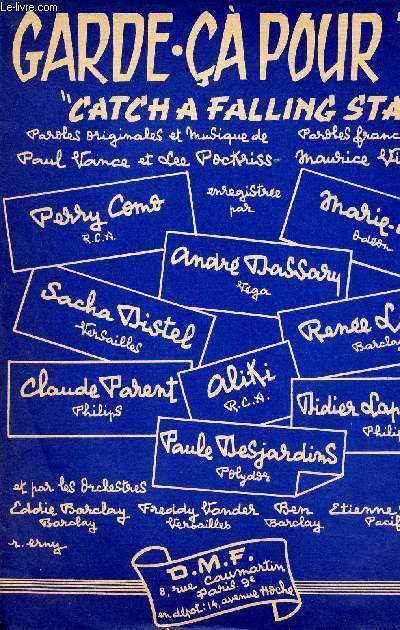 © Le-livre.fr
GARDE-ÇÀ POUR
"CATCH A FALLING STA
Paroles originales et Musique de
Paroles franc
Paul Vance et Lee Pockriss
Maurice Vi
enregistrée
par
Perry Como
R.C.A.
Marie-
Odéon
André Dassary
Véga
Sacha Distel
Versailles
Renée L
Barclay
Claude Parent
Philips
Aliki
R.C.A.
Didier Lap
Philip
Paule Desjardins
Polydor
et par les Orchestres
Eddie Barclay
Barclay
Freddy Vander
Versailles
Ben
Barclay
Etienne
Pacif
r. erny
D.M.F.
8, rue Caumartin
Paris. 9e
en dépot: 14, avenue Hoche